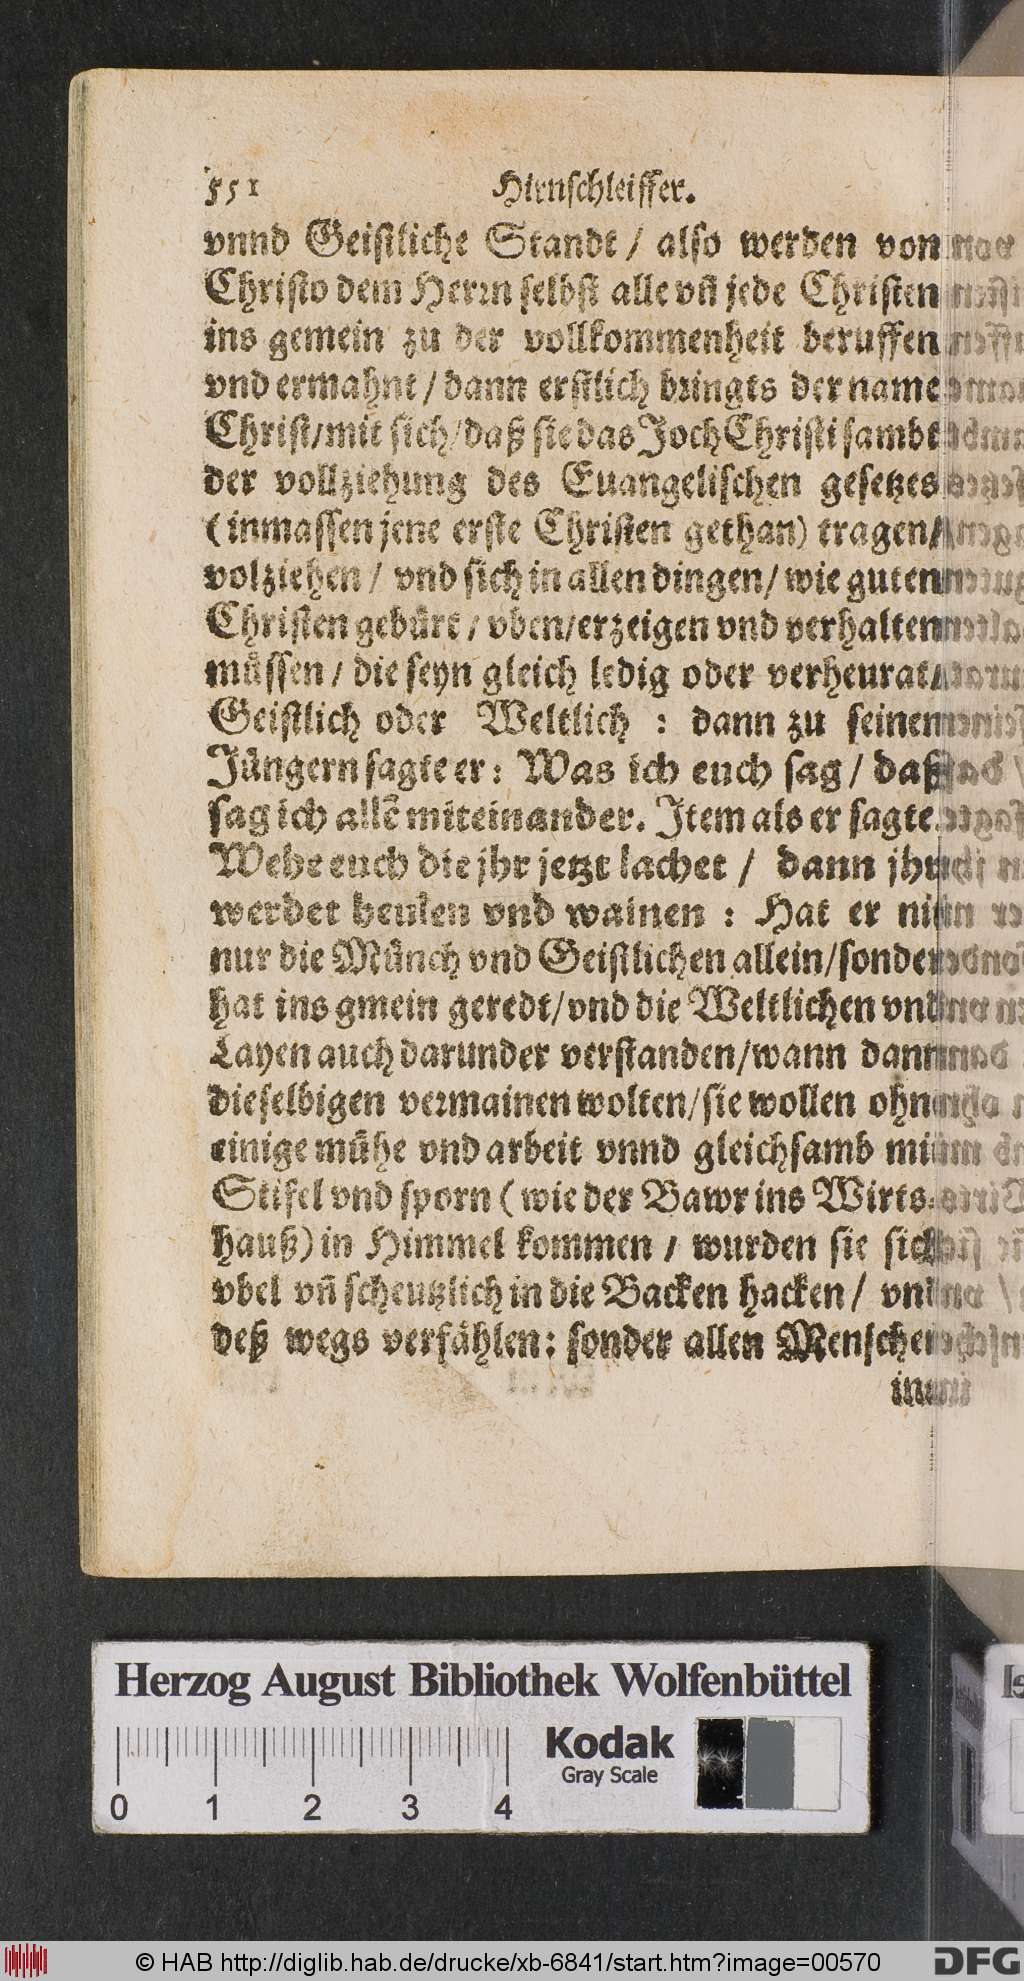 551 Hirnschleiffer.
vnnd Geistliche Standt / also werden von
Christo dem Herrn selbst alle vñ jede Christen
ins gemein zu der vollkommenheit beruffen
vnd ermahnt / dann erstlich bringts der name
Christ/mit sich/daß sie das Joch Christi sambt
der vollziehung des Euangelischen gesetzes
(inmassen jene erste Christen gethan) tragen/
volziehen / vnd sich in allen dingen / wie guten
Christen gebürt / vben/erzeigen vnd verhalten
müssen / die seyn gleich ledig oder verheurat/
Geistlich oder Weltlich : dann zu seinen
Jüngern sagte er: Was ich euch sag / daß
sag ich allẽ miteinander. Item als er sagte
Wehe euch die jhr jetzt lachet / dann jhr
werdet heulen vnd wainen : Hat er nit
nur die Münch vnd Geistlichen allein/sonder
hat ins gmein geredt/vnd die Weltlichen vnd
Layen auch darunder verstanden/wann dann
dieselbigen vermainen wolten/sie wollen ohn
einige mühe vnd arbeit vnnd gleichsamb mit
Stifel vnd sporn ( wie der Bawr ins Wirts-
hauß) in Himmel kommen / wurden sie sich
vbel vñ scheutzlich in die Backen hacken / vnd
deß wegs verfählen: sonder allen Menschen
Herzog August Bibliothek Wolfenbüttel
Kodak
Gray Scale
0 1 2 3 4
© HAB http://diglib.hab.de/drucke/xb-6841/start.htm?image=00570
DFG